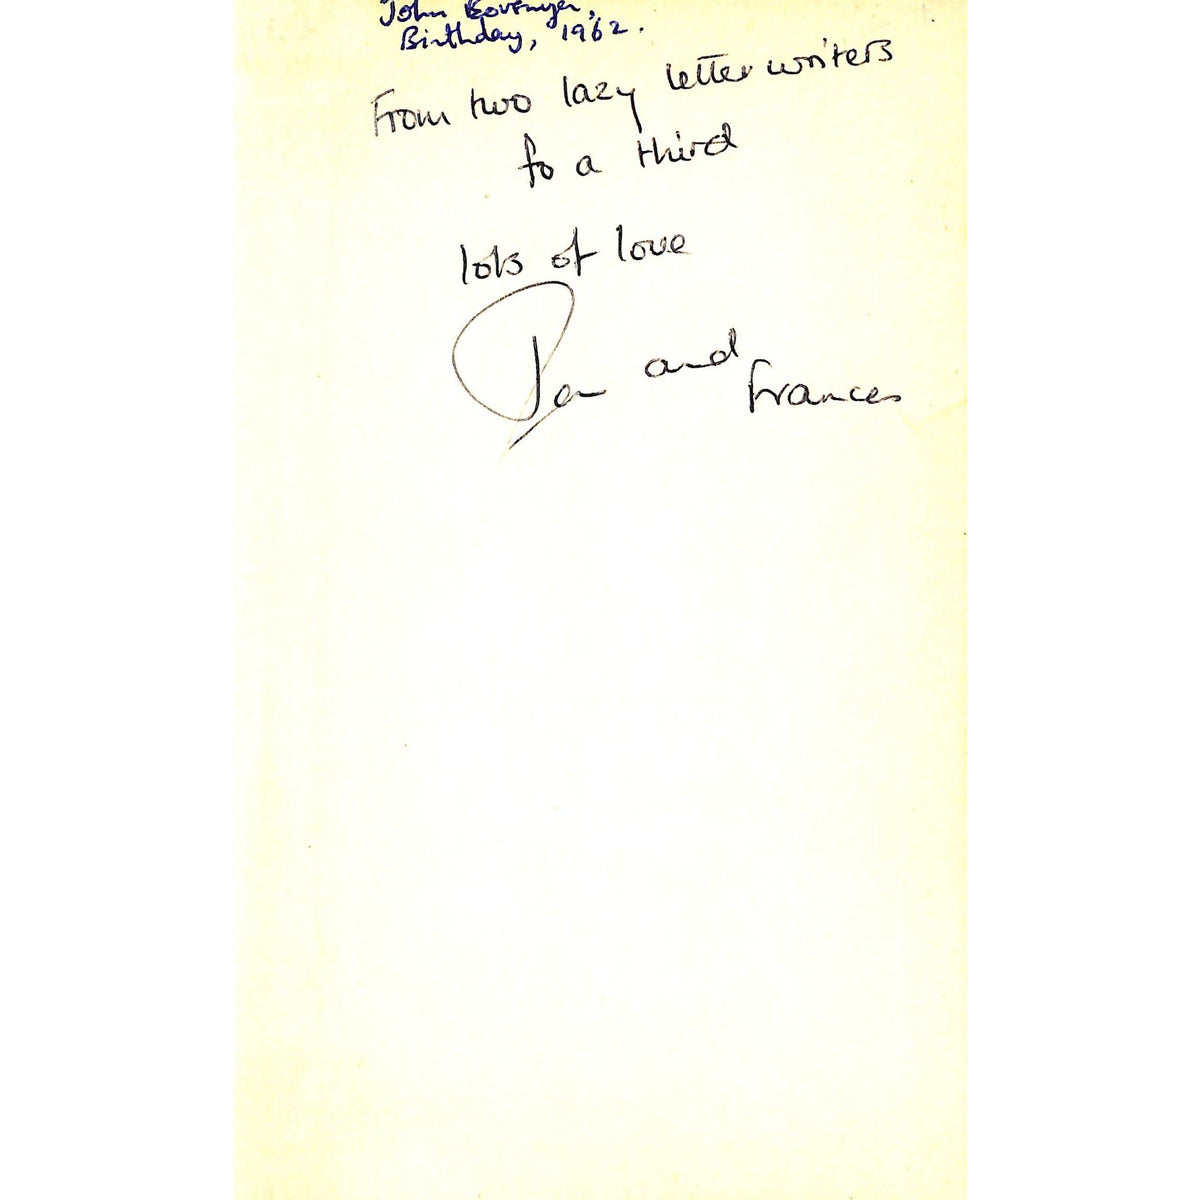 John
Birthday, 1962.
From two lazy letter writers
to a third
lots of love
and Frances